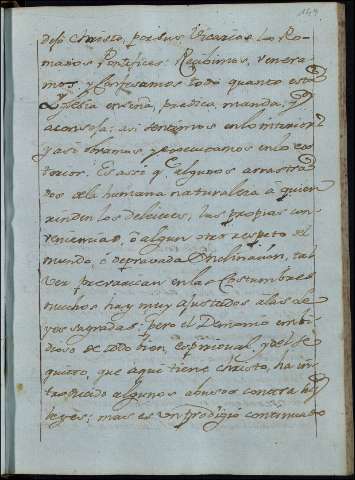 149
desu Christo, por sus Vicarios los Ro-
manos Pontifices: Recibimos, venera-
mos, y Confesamos todo quanto esta
Yglesia enseña, practica, manda, y
aconseja: asi sentimos en lo interior
y asi obramos, y executamos en lo ex-
terior. Es assi q. algunos arrastra-
dos de la humana naturaleza à quien
rinden los deleites, las propias con-
veniencias, ò algun otro respeto del
mundo, ò depravada Inclinacion, tal
vez prevarican en las Costumbres
muchos hay muy ajustados a las le-
yes sagradas: pero el Demonio embi-
dioso de todo bien espiritual, y del se-
quito, que aqui tiene Christo, ha in-
troducido algunos abusos contra las
leyes: mas es un prodigio continuado